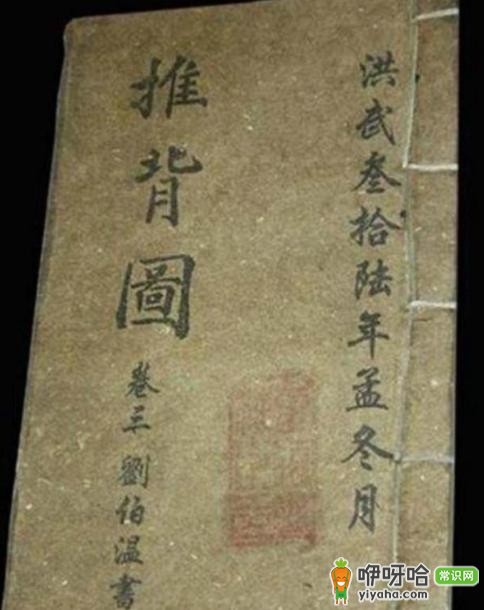 洪武叁拾陆年孟冬月
推背圖
卷三 劉伯温書
咿呀哈 常识网
yiyaha.com